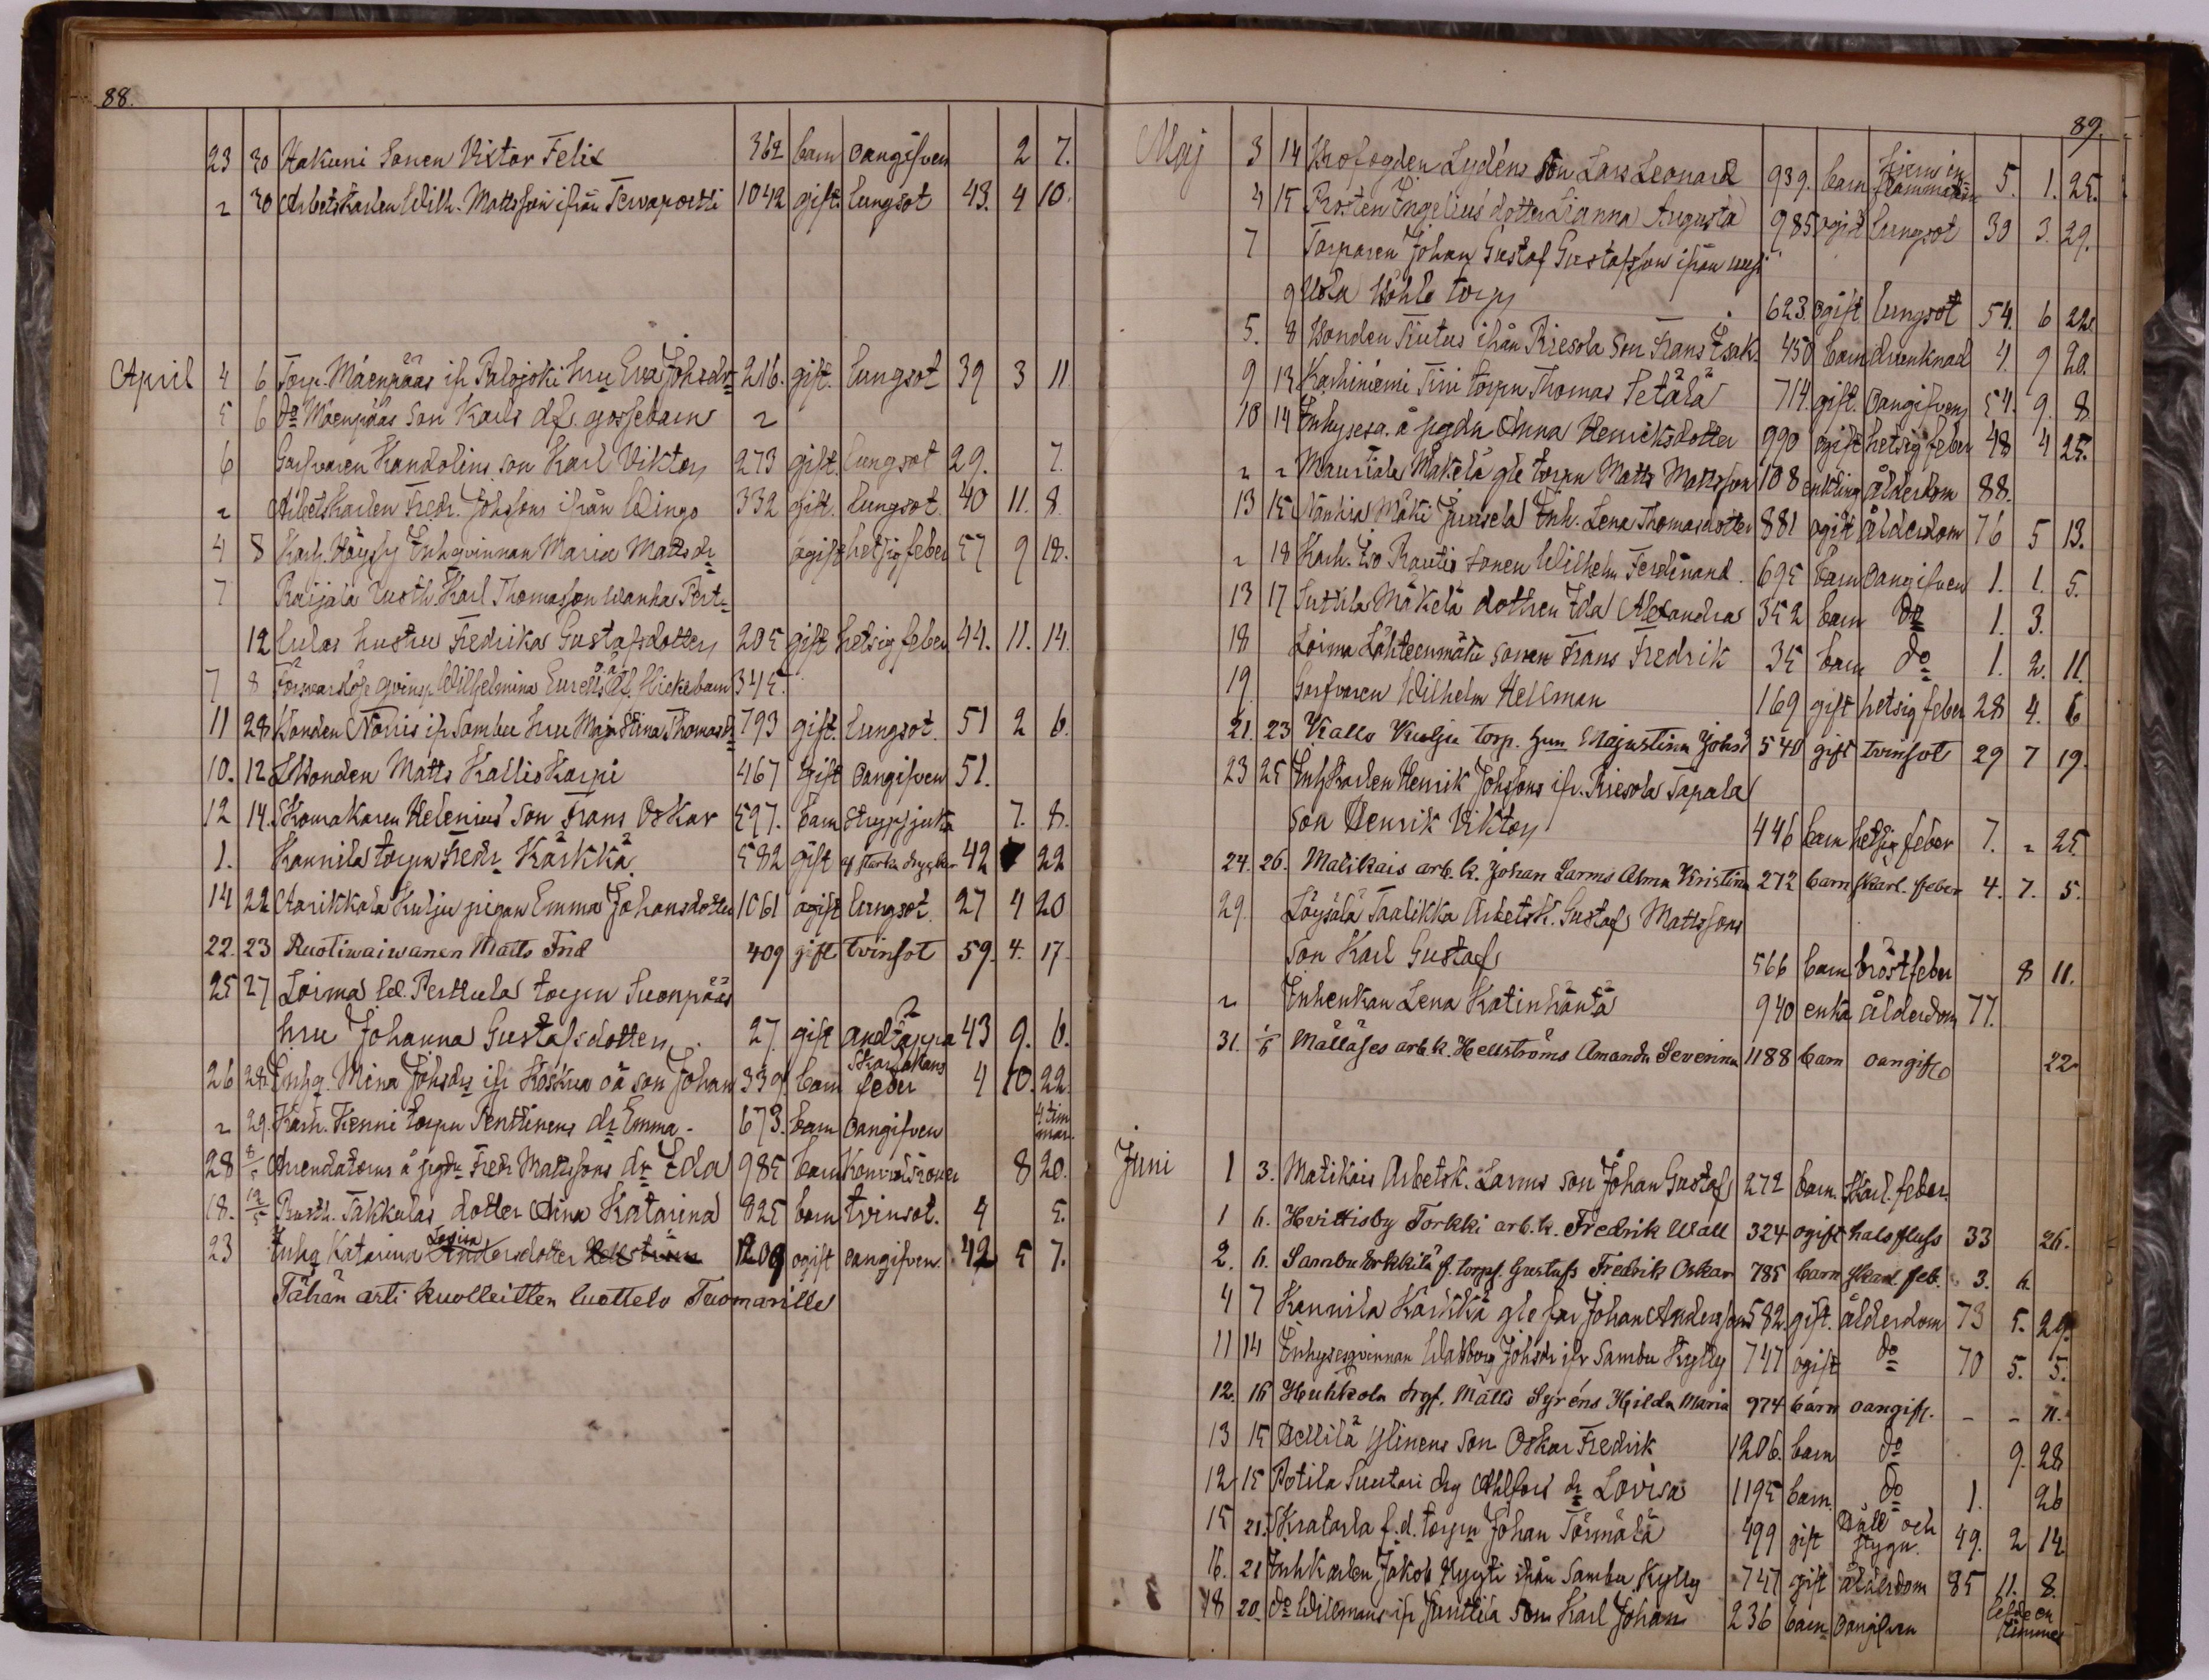 88.
23 30 Hakuni Sonen Viktor Felix 362 barn oangifven 2 7.
" 30 Arbetskarlen Wilh. Mattsson ifrån Terwapoetti 1042 gift. lungsot 43. 4 10.
April 4 6 Torp. Mäenpääs ifr Palojoki hru Eva Johsdr 216. gift. lungsot 39 3 11
5 6 do Mäenpääs Son Karls df. gossebarn "
6 Garfvaren Handolins son Karl Viktor 273 gift. lungsot 29. 7.
" Arbetskarlen Fredr. Johssons ifrån Wingo 332 gift. lungsot. 40 11. 8.
4 8 Karh. Höyssy Inhqvinnan Maria Mattsdr ogift hetsig feber 57 9 18.
7 Raijala Rusth. Karl Thomasson Wanha Pert-
12 tulas hustru Fredrika Gustafsdotter 205 gift hetsig feber 44. 11. 14.
7 8 Förswarslöse qvinsp. Wilhelmina df. flickebarn 345.
11 28 Bonden Norris ifr Sambu hru Maja Stina Thomasdr 793 gift. lungsot. 51 2 6.
10. 12 Bonden Matts Kallis Karpi 467 gift oangifven 51.
12 14. Skomakaren Helenius Son Frans Oskar 597. barn strypsjuka 7. 8.
1. Kannila torpn Fredr Kärkkä 582 gift af starka drycker 42 22
14 22 Aarikkala Kulju pigan Emma Johansdotter 1061 ogift lungsot. 27 4 20
22. 23 Ruotiwaiwanen Matts Frid 409 gift tvinsot 59. 4. 17.
25 27 Loima Perttula torpn Suonpääs
hru Johanna Gustafsdotter 27. gift andtäppa 43 9. 6.
26 28. Inhq. Mina Johsdrs ifr Koskua oä son Johan 339. barn Skarlakans feber 4 10. 22.
" 29. Karh. Kenni torpn Penttinens dr Emma. 673. barn oangifven 4 timmar.
28 8/5 Arendatorns å pgdn Fredr Mattssons dr Ida 985 barn Konvulsioner 8 20.
18. 12/5 Rusth. Takkulas dotter Aina Katarina 825 barn tvinsot. 4 5.
23 Inhq Katarina Lovisa Andersdotter 1209 ogift oangifven. 42 5 7.
Tähän asti kuolleitten luettelo Tuomarille
89.
Maj 3 14 Krofogden Lydéns Son Lars Leonard 939. barn 5. 1. 25.
4 15 Prosten Ingelius dotter Lianna Augusta 985 ogift lungsot 30 3. 29.
7 Torparen Johan Gustaf Gustafsson ifrån
9 torp 623. ogift. lungsot 54. 6 22.
5. 8 Bonden Tiutus ifrån Piesola Son Frans Isak. 450 barn drunknad 4. 9 20.
9 13 Karhiniemi Tini torpn Thomas Setälä 714. gift. oangifven 54. 9. 8
10 14 Inhysesq. å pgdn Anna Henricksdotter 990 ogift hetsig feber 48 4 25.
" " Mauriala Mäkelä gle torpn Matts Mattsson 108 enkling ålderdom 88.
13 15 Nanhia Mäki Juusela Inh. Lena Thomasdotter 881 ogift ålderdom 76 5 13.
" 18 Karh. Iso Rautio sonen Wilhelm Ferdinand. 695 barn oangifven 1. 1. 5.
13 17 Suttila Mäkelä dottren Ida Alexandra 352 barn do 1. 3.
18 Loima Lähteenmäki sonen Frans Fredrik 35 barn do 1. 2. 11.
19. Garfvaren Wilhelm Hellman 169 gift hetsig feber 28 4. 6
21. 23 Kallo Kulju torp. hrn Majastina Johsd 540 gift tvinsot 29 7 19.
23 25 Inhkarlen Henrik Johssons ifr. Piesola Tapala
Son Henrik Viktor 446 barn hetsig feber 7. " 25.
24. 26. Matikais arb. k. Johan Larms Alma Kristina 272 barn skarl. feber 4. 7. 5.
29. Löysälä Taalikka Arbetsk. Gustaf Mattssons
Son Karl Gustaf 566 barn bröstfeber 8 11.
" Inhenkan Lena Katinhäntä 940 enka ålderdom 77.
31. 1/6 Mällälses arb. k. Hellströms Amanda Severina 1188 barn oangifv 22
Juni 1 3. Matikais Arbetsk. Larms Son Johan Gustaf 272 barn. skarl. feber.
1 6. Hvittisby Torkki arb. k. Fredrik Wall 324 ogift halsfluss 33 26.
2. 6. Sambu Erkkilä f. torpf. Gustafs Fredrik Oskar 785 barn skarl. feb. 3. 6.
4 7 Kannila Kärkkä gle far Johan Andersson 582. gift. ålderdom 73 5. 29.
11 14 Inhysesqvinnan Walborg Johsdr ifr Sambu Kylly 747 ogift do 70 5. 5.
12. 16 Huhkola drgf. Matts Syréns Hilda Maria 974 barn oangifv. - - 11.
13 15 Dellilä Ylinens Son Oskar Fredrik 1206. barn do 9. 28
12 15 Potila Suutari drg Ahlfors dr Lovisa 1195 barn. do 1. 26
15 21. Skratarla f.d. torpn Johan Törmälä 499 gift Håll och stygn. 49. 2 14
16. 21 Inhkarlen Jakob Nyyti ifrån Sambu Kylly 747 gift ålderdom 85 11. 8.
18 20. do Willmans ifr Junttila Son Karl Johan 236 barn oangifven lefde en timme